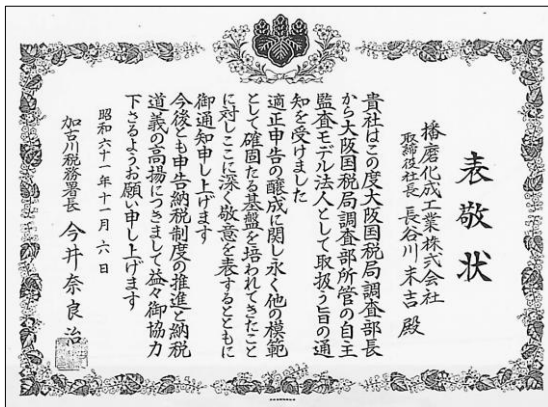 表敬状
播磨化成工業株式会社
取締役社長 長谷川末吉 殿
貴社はこの度大阪国税局調査部長
から大阪国税局調査部所管の自主
監査モデル法人として取扱う旨の通
知を受けました
適正申告の醸成に関し永く他の模範
として確固たる基盤を培われてきたこと
に対しここに深く敬意を表するとともに
御通知申し上げます
今後とも申告納税制度の推進と納税
道義の高揚につきまして益々御協力
下さるようお願い申し上げます
昭和六十一年十一月六日
加古川税務署長 今井奈良治